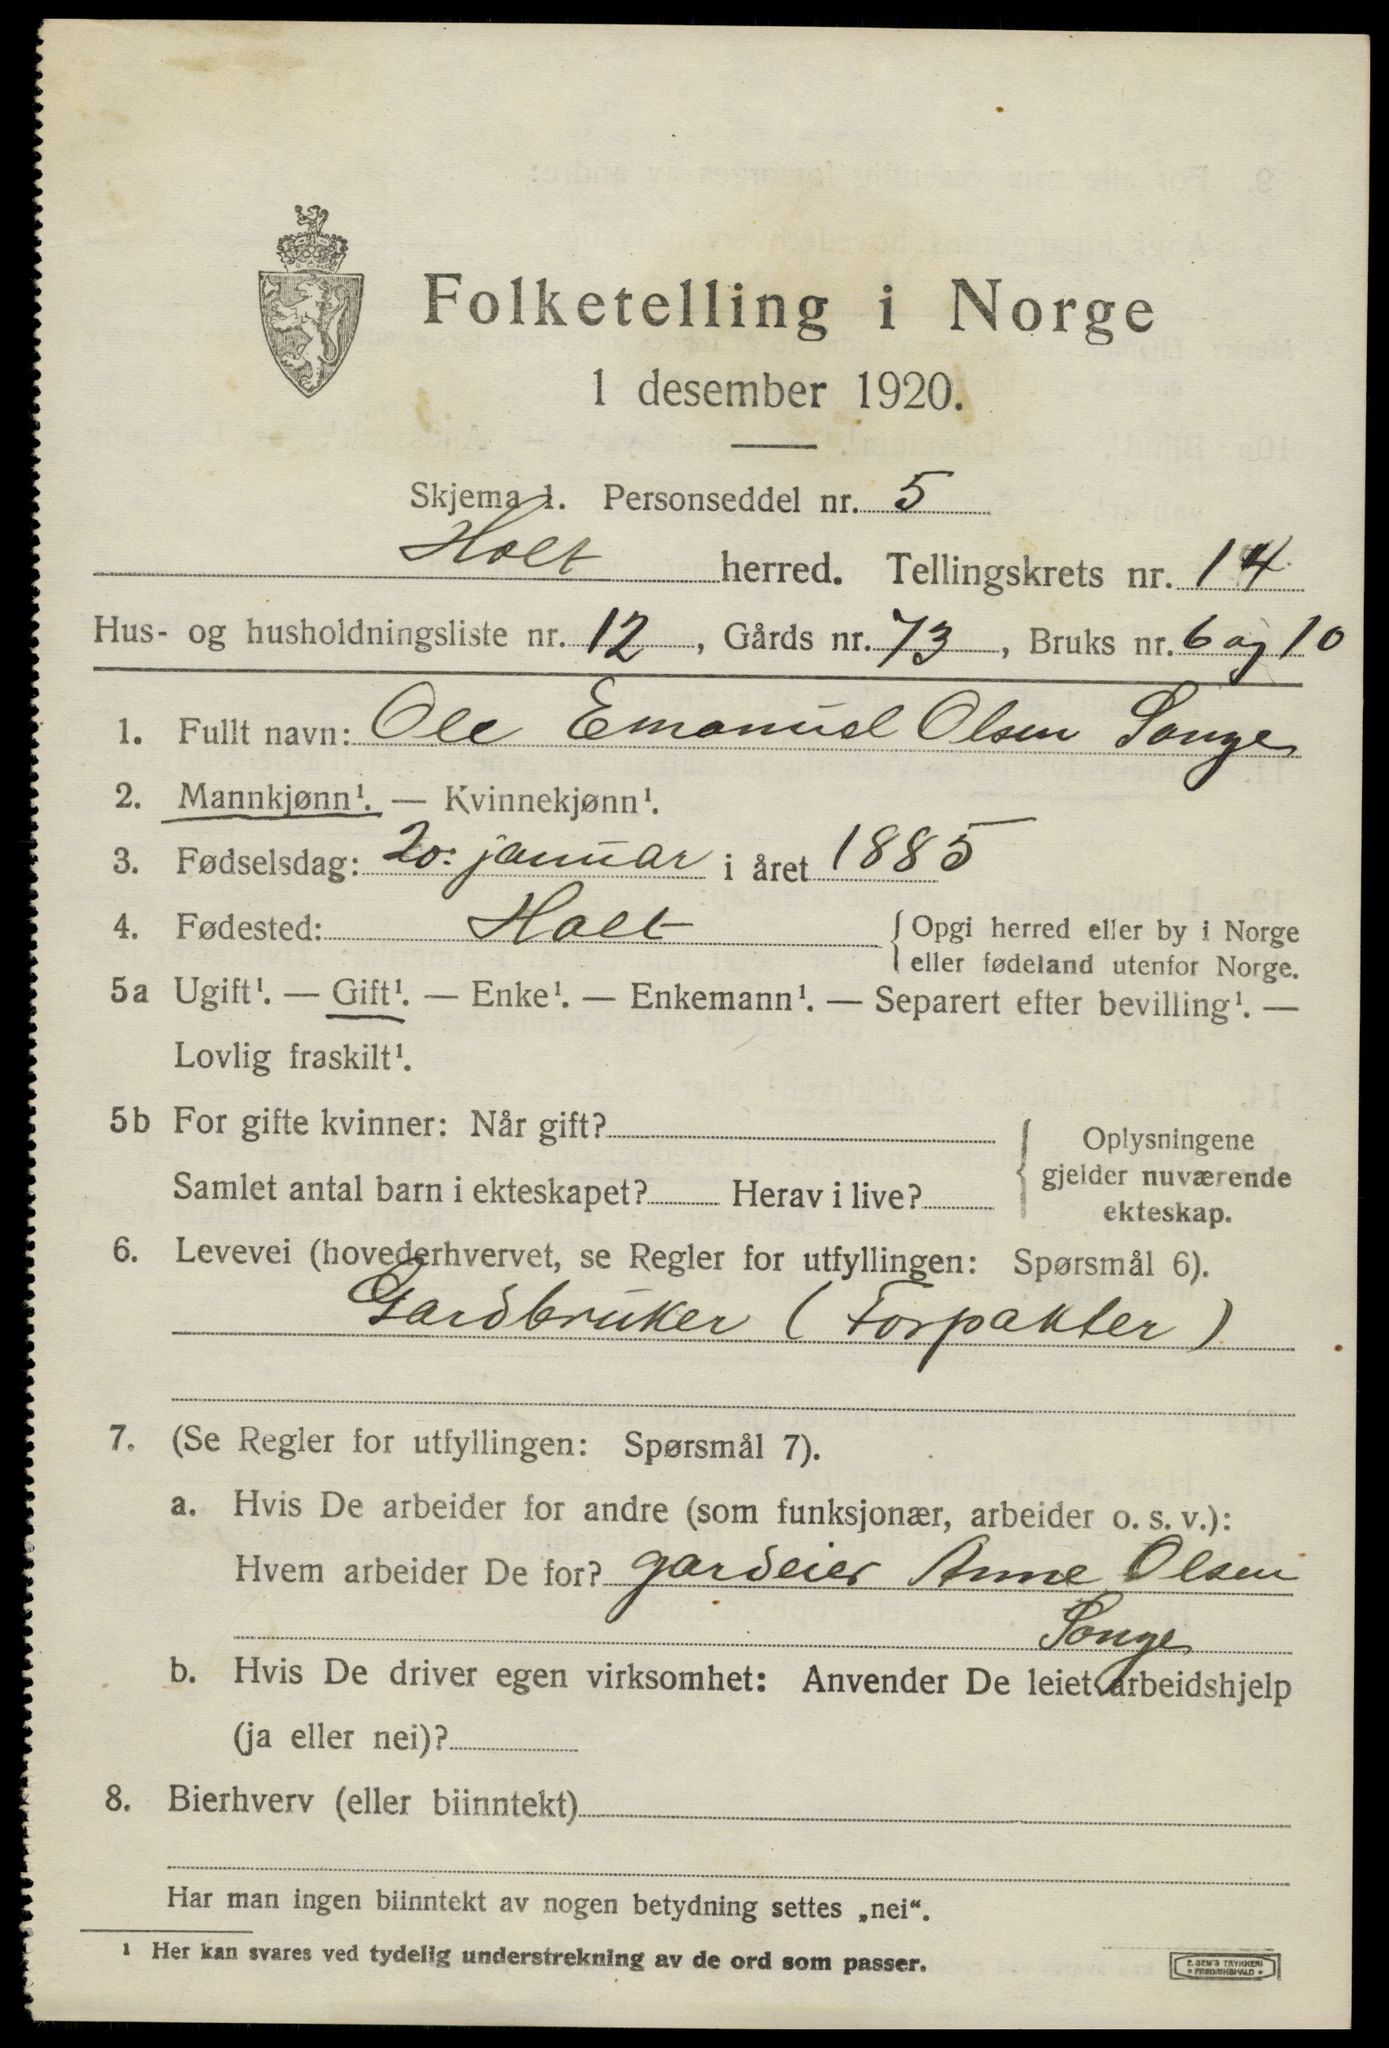 Folketelling i Norge
1 desember 1920.
Skjema 1. Personseddel nr. 5
Holt herred. Tellingskrets nr. 14
Hus- og husholdningsliste nr. 12, Gårds nr. 73, Bruks nr. 6 og 10
1. Fullt navn: Ole Emanuel Olsen Songe
2. Mannkjønn¹. — Kvinnekjønn¹.
3. Fødselsdag: 20. januar i året 1885
4. Fødested: Holt { Opgi herred eller by i Norge
eller fødeland utenfor Norge.
5a Ugift¹. — Gift¹. — Enke¹. — Enkemann¹. — Separert efter bevilling¹. —
Lovlig fraskilt¹.
5b For gifte kvinner: Når gift?
Samlet antal barn i ekteskapet? Herav i live?
Oplysningene
gjelder nuværende
ekteskap.
6. Levevei (hovederhvervet, se Regler for utfyllingen: Spørsmål 6).
Gardbruker (Forpakter)
7. (Se Regler for utfyllingen: Spørsmål 7).
a. Hvis De arbeider for andre (som funksjonær, arbeider o. s. v.):
Hvem arbeider De for? gardeier Anne Olsen
Songe
b. Hvis De driver egen virksomhet: Anvender De leiet arbeidshjelp
(ja eller nei)?
8. Bierhverv (eller biinntekt)
Har man ingen biinntekt av nogen betydning settes „nei“.
¹ Her kan svares ved tydelig understrekning av de ord som passer.
E. SEM'S TRYKKERI
FREDRIKSHALD